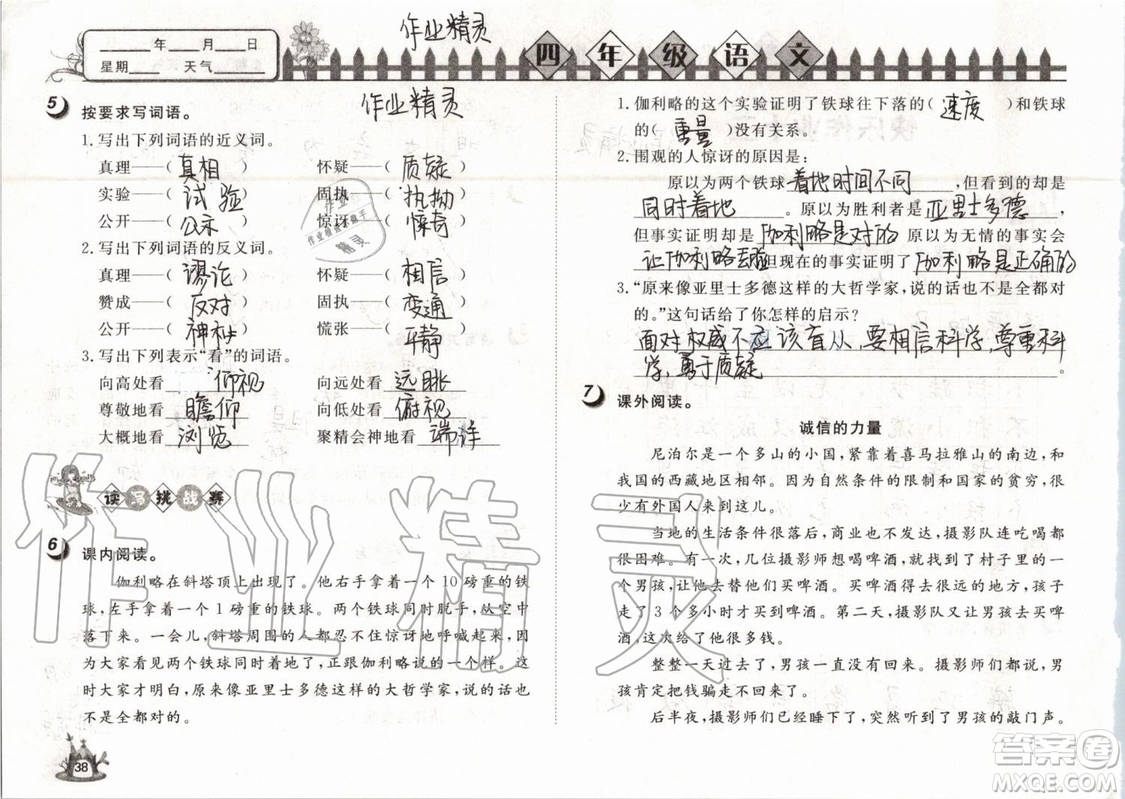 作业精灵
四年级语文
____年____月____日
星期____ 天气____
5 按要求写词语。
作业精灵
1.写出下列词语的近义词。
真理——( 真相 ) 怀疑——( 质疑 )
实验——( 试验 ) 固执——( 执拗 )
公开——( 公示 ) 惊讶——( 惊奇 )
2.写出下列词语的反义词。
真理——( 谬论 ) 怀疑——( 相信 )
赞成——( 反对 ) 固执——( 变通 )
公开——( 神秘 ) 慌张——( 平静 )
3.写出下列表示“看”的词语。
向高处看 仰视 向远处看 远眺
尊敬地看 瞻仰 向低处看 俯视
大概地看 浏览 聚精会神地看 端详
读写挑战赛
6 课内阅读。
伽利略在斜塔顶上出现了。他右手拿着一个 10 磅重的铁
球,左手拿着一个 1 磅重的铁球。两个铁球同时脱手,从空中
落下来。一会儿,斜塔周围的人都忍不住惊讶地呼喊起来,因
为大家看见两个铁球同时着地了,正跟伽利略说的一个样。这
时大家才明白,原来像亚里士多德这样的大哲学家,说的话也
不是全都对的。
38
1.伽利略的这个实验证明了铁球往下落的( 速度 )和铁球
的( 重量 )没有关系。
2.围观的人惊讶的原因是:
原以为两个铁球 着地时间不同 ,但看到的却是
同时着地 。原以为胜利者是 亚里士多德 ,
但事实证明却是 伽利略是对的 原以为无情的事实会
让伽利略丢脸 但现在的事实证明了 伽利略是正确的
3.“原来像亚里士多德这样的大哲学家,说的话也不是全都对
的。”这句话给了你怎样的启示?
面对权威不应该盲从,要相信科学,尊重科
学,勇于质疑 。
7 课外阅读。
诚信的力量
尼泊尔是一个多山的小国,紧靠着喜马拉雅山的南边,和
我国的西藏地区相邻。因为自然条件的限制和国家的贫穷,很
少有外国人来到这儿。
当地的生活条件很落后,商业也不发达,摄影队连吃喝都
很困难。有一次,几位摄影师想喝啤酒,就找到了村子里的一
个男孩,让他去替他们买啤酒。买啤酒要去很远的地方,孩子
走了 3 个多小时才买到啤酒。第二天,摄影队又让男孩去买啤
酒,这次给了他很多钱。
整整一天过去了,男孩一直没有回来。摄影师们都说,男
孩肯定把钱骗走不回来了。
后半夜,摄影师们已经睡下了,突然听到了男孩的敲门声。
作业精灵
答案圈
MXQE.COM